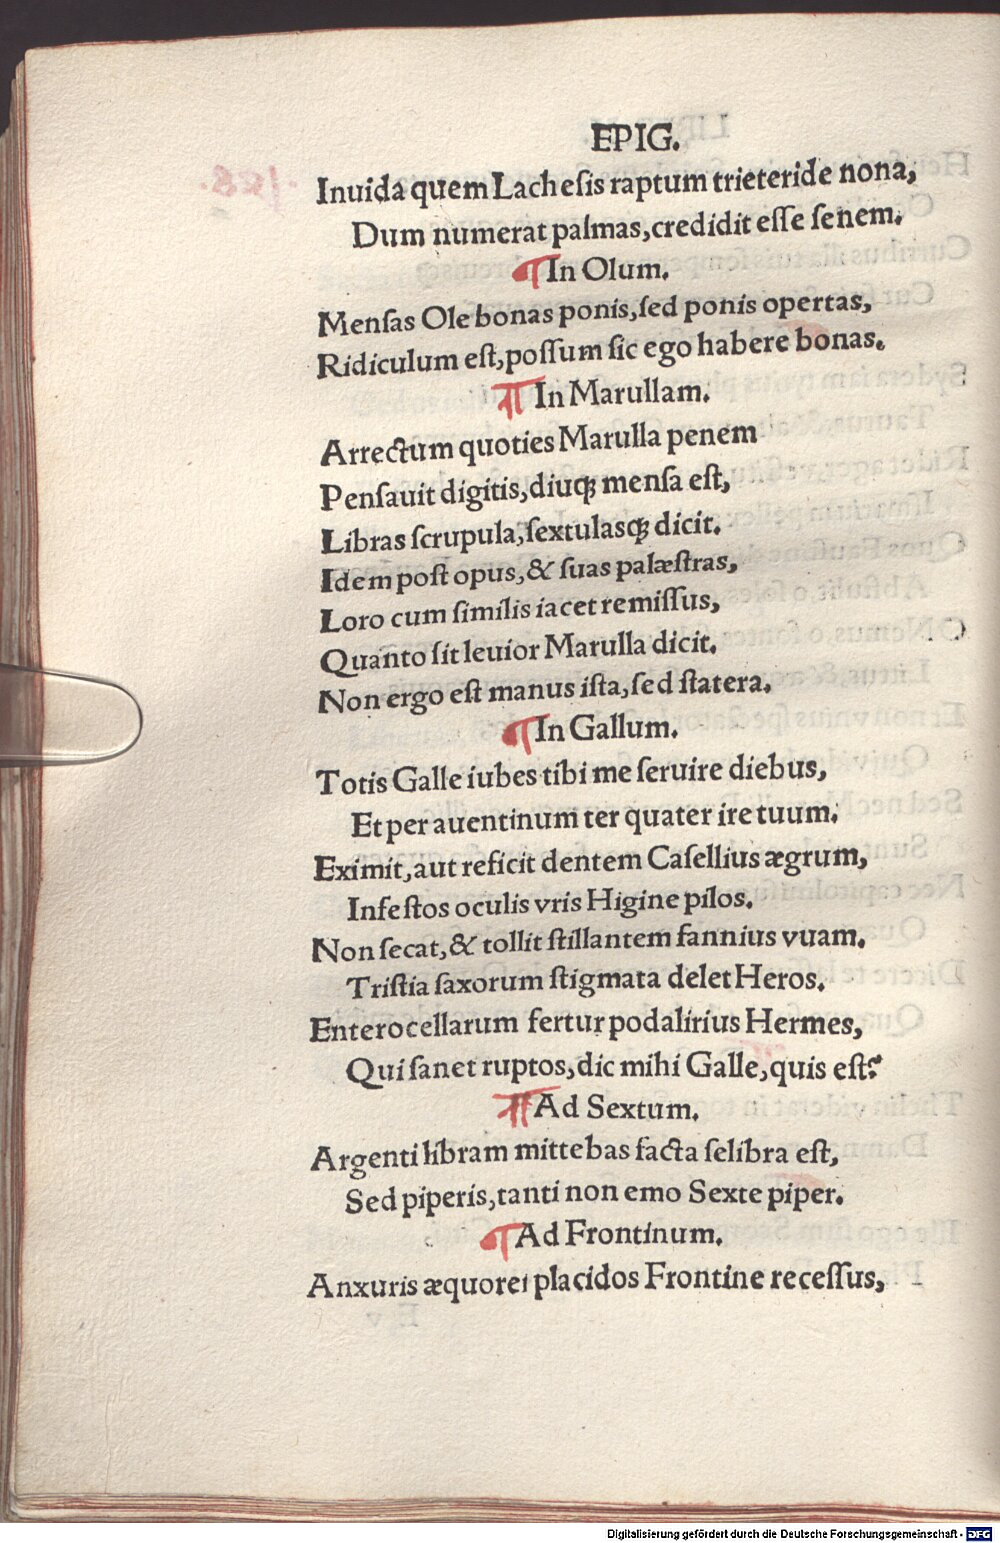 EPIG.
Inuida quem Lachesis raptum trieteride nona,
Dum numerat palmas, credidit eſſe ſenem.
¶ In Olum.
Menſas Ole bonas ponis, ſed ponis opertas,
Ridiculum eſt, poſſum ſic ego habere bonas.
¶ In Marullam.
Arrectum quoties Marulla penem
Penſauit digitis, diuqꝫ menſa eſt,
Libras ſcrupula, ſextulasqꝫ dicit.
Idem poſt opus, & ſuas palæſtras,
Loro cum ſimilis iacet remiſſus,
Quanto ſit leuior Marulla dicit.
Non ergo eſt manus iſta, ſed ſtatera.
¶ In Gallum.
Totis Galle iubes tibi me ſeruire diebus,
Et per auentinum ter quater ire tuum.
Eximit, aut reficit dentem Caſellius ægrum,
Infeſtos oculis vris Higine pilos.
Non ſecat, & tollit ſtillantem fannius vuam.
Triſtia ſaxorum ſtigmata delet Heros.
Enterocellarum fertur podalirius Hermes,
Qui ſanet ruptos, dic mihi Galle, quis eſt?
¶ Ad Sextum.
Argenti libram mittebas facta ſelibra eſt,
Sed piperis, tanti non emo Sexte piper.
¶ Ad Frontinum.
Anxuris æquorei placidos Frontine receſſus,
Digitalisierung gefördert durch die Deutsche Forschungsgemeinschaft - DFG